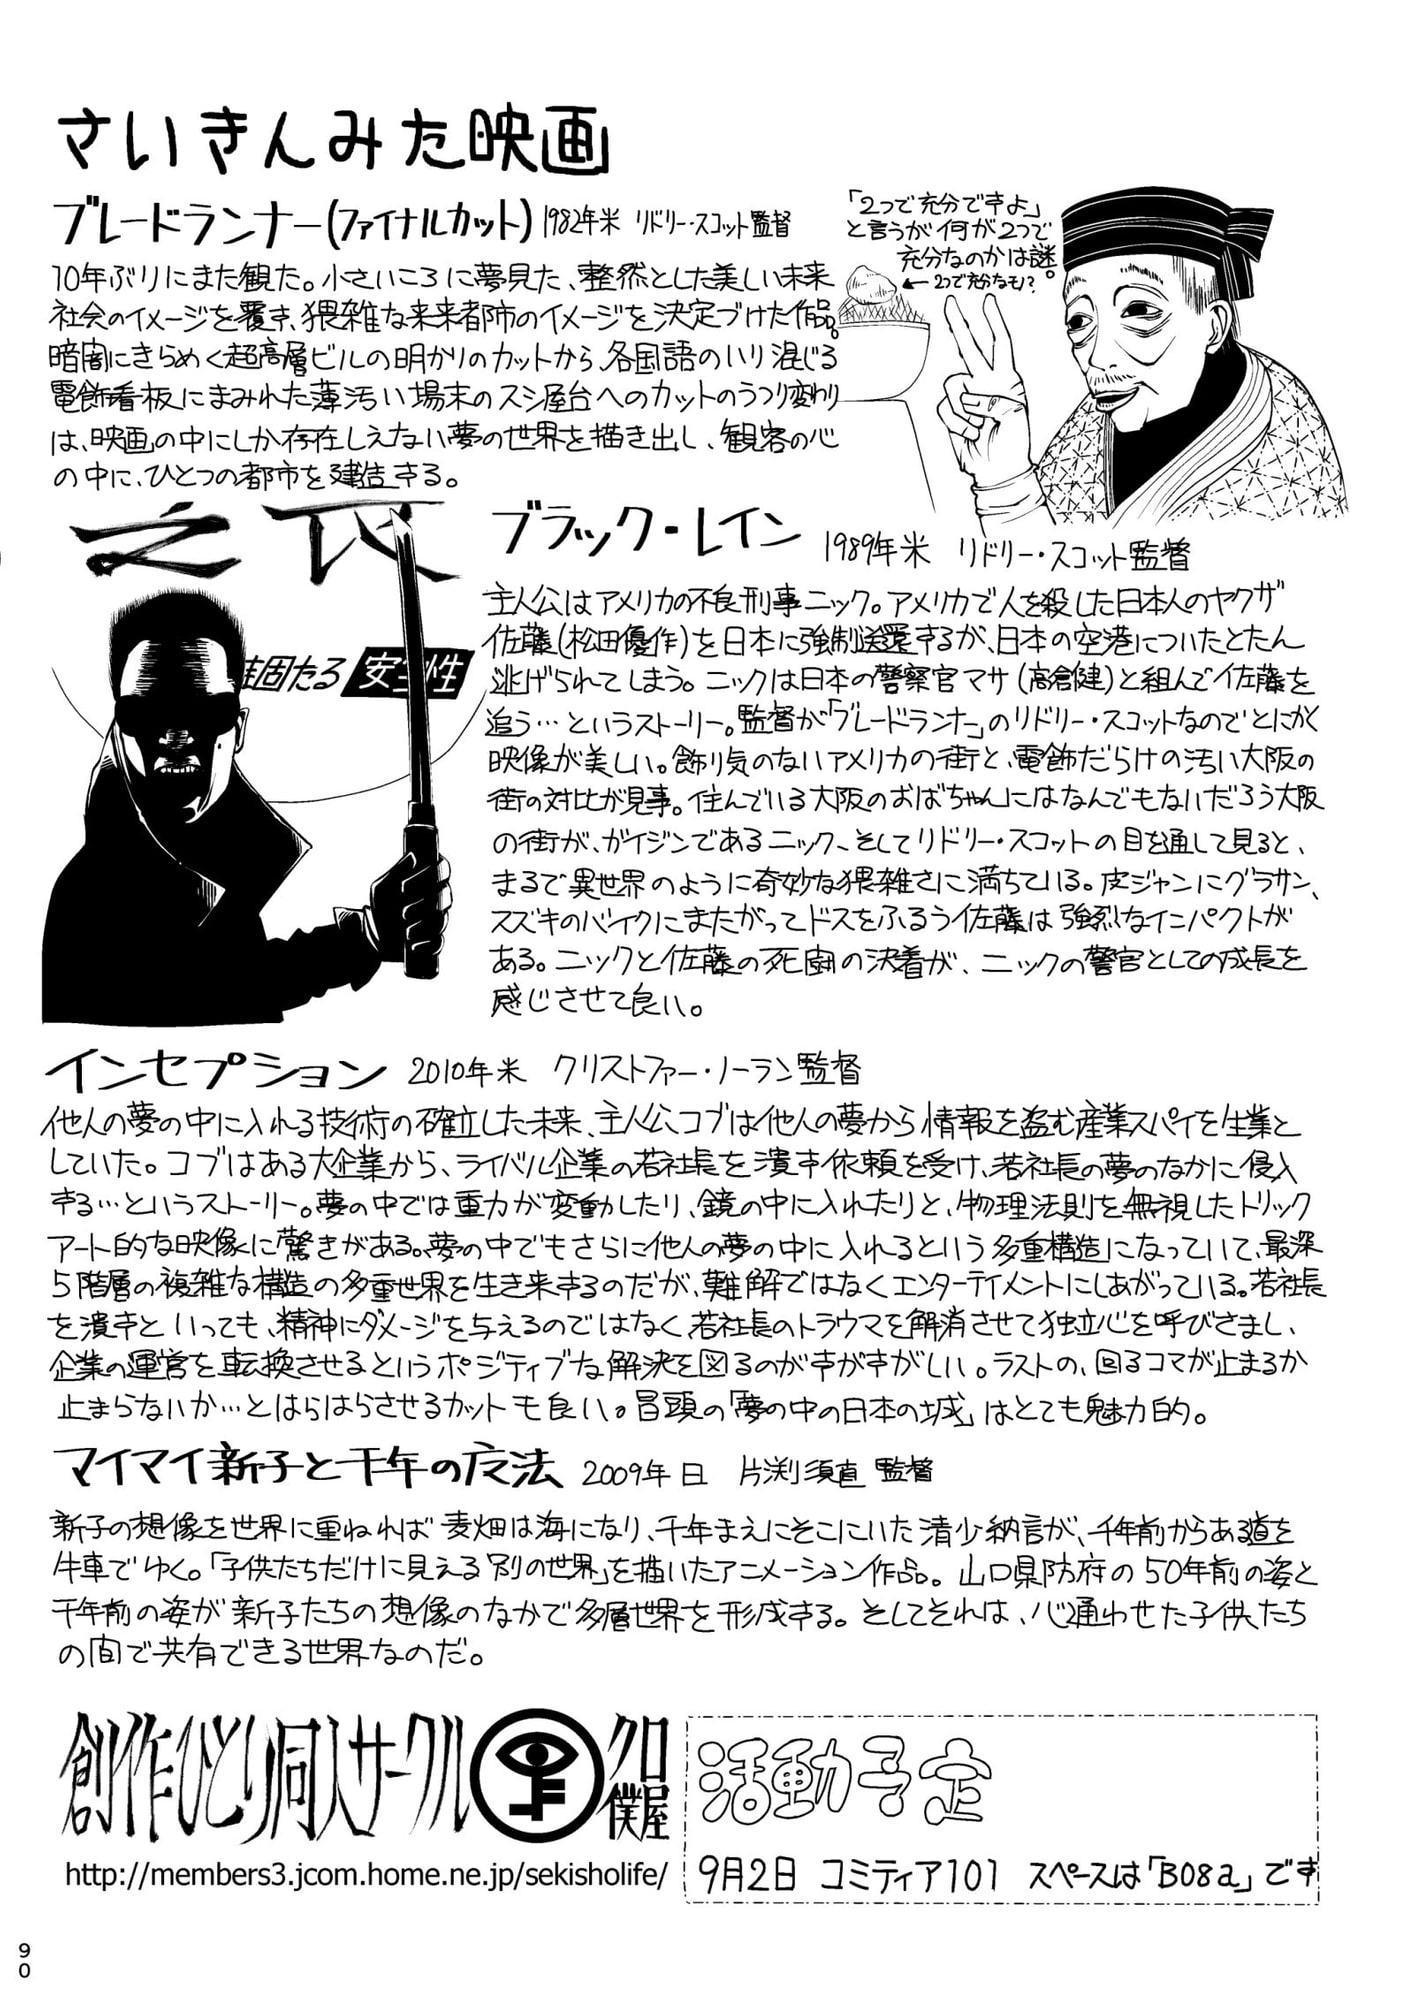 さいきんみた映画
ブレードランナー(ファイナルカット) 1982年米 リドリー・スコット監督
10年ぶりにまた観た。小さいころに夢見た、整然とした美しい未来
社会のイメージを覆き、猥雑な未来都市のイメージを決定づけた作品。
暗闇にきらめく超高層ビルの明かりのカットから、各国語のいり混じる
電飾看板にまみれた薄汚い場末のスシ屋台へのカットのうつり変わり
は、映画の中にしか存在しえない夢の世界を描き出し、観客の心
の中に、ひとつの都市を建造する。
「2つで充分ですよ」
と言うが何が2つで
充分なのかは謎。
←2つで充分なモノ?
堅固たる 安全性
ブラック・レイン 1989年米 リドリー・スコット監督
主人公はアメリカの不良刑事ニック。アメリカで人を殺した日本人のヤクザ
佐藤(松田優作)を日本に強制送還するが、日本の空港についたとたん
逃げられてしまう。ニックは日本の警察官マサ(高倉健)と組んで佐藤を
追う…というストーリー。監督が「ブレードランナー」のリドリー・スコットなのでとにかく
映像が美しい。飾り気のないアメリカの街と、電飾だらけの汚い大阪の
街の対比が見事。住んでいる大阪のおばちゃんにはなんでもないだろう大阪
の街が、ガイジンであるニック、そしてリドリー・スコットの目を通して見ると、
まるで異世界のように奇妙な猥雑さに満ちている。皮ジャンにグラサン、
スズキのバイクにまたがってドスをふるう佐藤は強烈なインパクトが
ある。ニックと佐藤の死闘の決着が、ニックの警官としての成長を
感じさせて良い。
インセプション 2010年米 クリストファー・ノーラン監督
他人の夢の中に入れる技術の確立した未来、主人公コブは他人の夢から情報を盗む産業スパイを生業と
していた。コブはある大企業から、ライバル企業の若社長を潰す依頼を受け、若社長の夢のなかに侵入
する…というストーリー。夢の中では重力が変動したり、鏡の中に入れたりと、物理法則を無視したトリック
アート的な映像に驚きがある。夢の中でもさらに他人の夢の中に入れるという多重構造になっていて、最深
5階層の複雑な構造の多重世界を生き来するのだが、難解ではなくエンターテイメントにしあがっている。若社長
を潰すといっても、精神にダメージを与えるのではなく、若社長のトラウマを解消させて独立心を呼びさまし、
企業の運営を転換させるというポジティブな解決を図るのがすがすがしい。ラストの、回るコマが止まるか
止まらないか…とはらはらさせるカットも良い。冒頭の「夢の中の日本の城」はとても魅力的。
マイマイ新子と千年の魔法 2009年日 片渕須直監督
新子の想像を世界に重ねれば麦畑は海になり、千年まえにそこにいた清少納言が、千年前からある道を
牛車でゆく。「子供たちだけに見える別の世界」を描いたアニメーション作品。山口県防府の50年前の姿と
千年前の姿が新子たちの想像のなかで多層世界を形成する。そしてそれは、心通わせた子供たち
の間で共有できる世界なのだ。
創作ひとり同人サークル クロ僕屋
http://members3.jcom.home.ne.jp/sekisholife/
活動予定
9月2日 コミティア101 スペースは「B08a」です
90